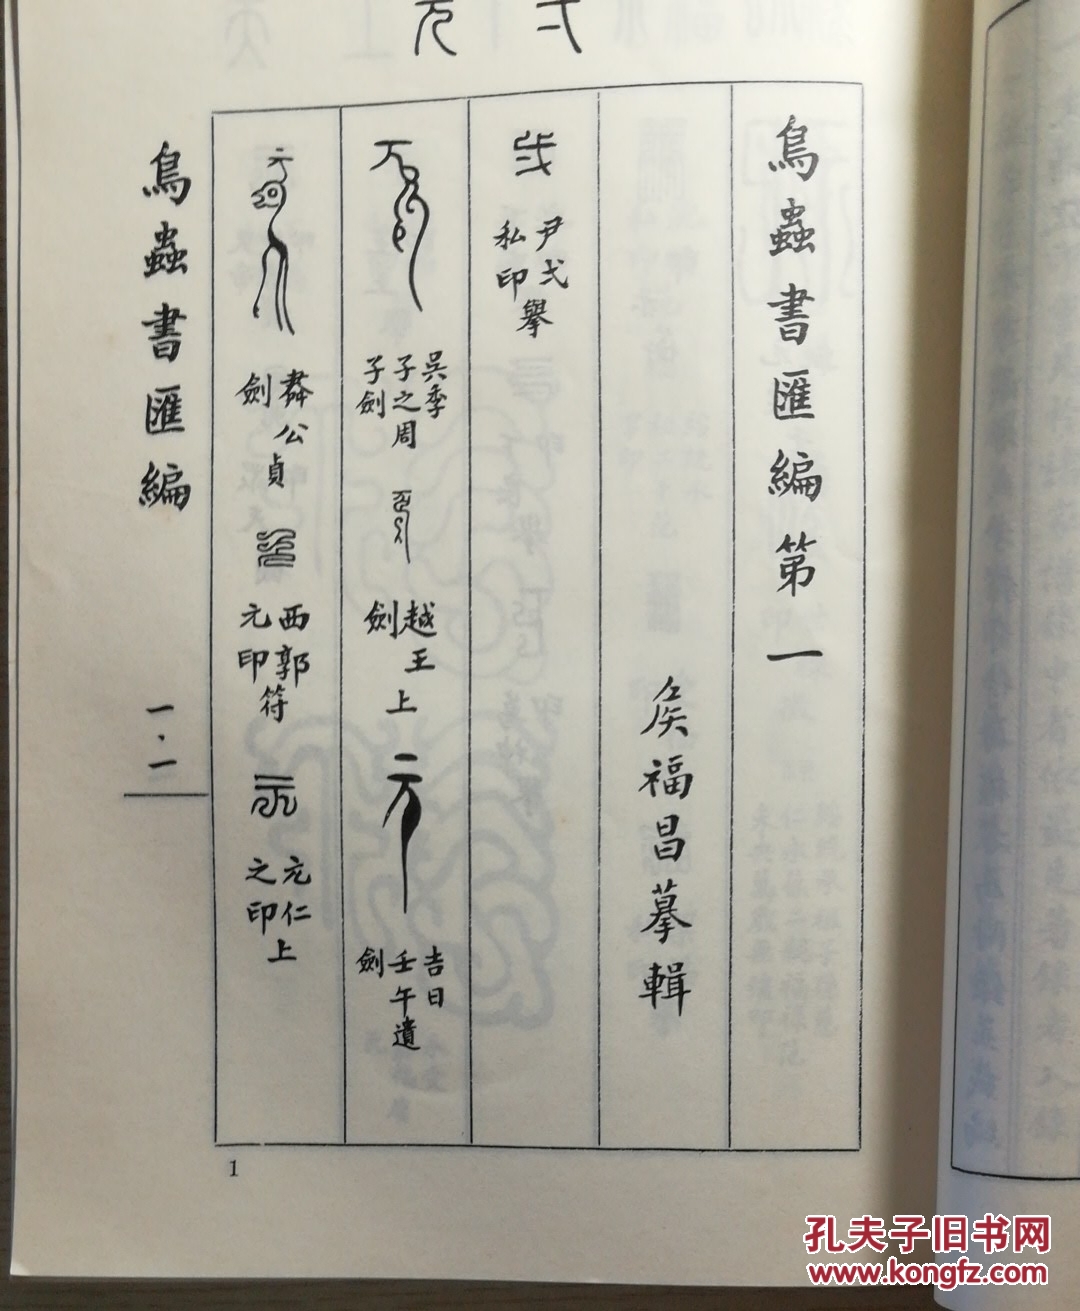 弌
元
鳥蟲書匯編第一
侯福昌摹輯
尹弌
私印
舉
吳季
子之周
子劍
越王
劍
上
吉日
壬午遺
劍
公貞
劍
西郭符
元印
元仁上
之印
鳥蟲書匯編
一·一
1
孔夫子旧书网
www.kongfz.com